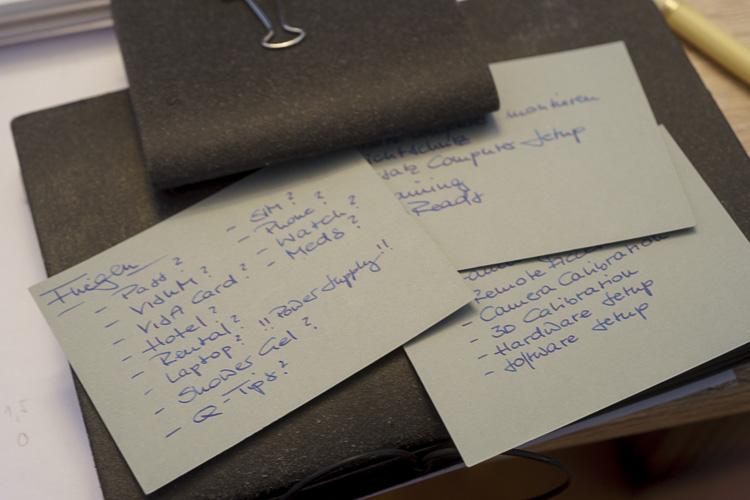 Fliegen
- Pass?
- VISUM?
- VISA Card?
- Hotel?
- Rental?
- Laptop? !! Power Supply !!
- Shower Gel?
- Q-Tips?
- SIM?
- Phone?
- Watch?
- Meds?
montieren
Computer Setup
Ready
- Remote
- Camera Calibration
- 3D Calibration
- Hardware Setup
- Software Setup